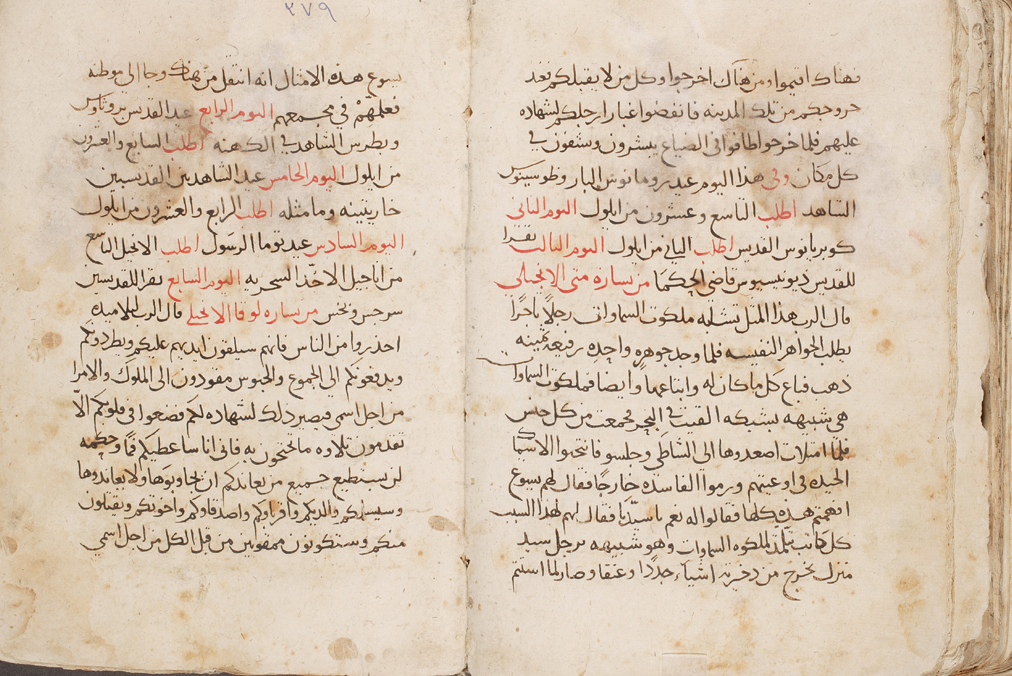 ٢٧٩
فهناك اقيموا ومن هناك اخرجوا وكل من لا يقبلكم فعند
خروجكم من تلك المدينه فانفضوا غبار ارجلكم لشهاده
عليهم فلما خرجوا طافوا في الضياع يبشرون ويشفون في
كل مكان وفي هذا اليوم عيد رومانوس البار
الشاهد اطلب التاسع وعشرون من ايلول اليوم الثاني
كوبريانوس القديس اطلب الثاني من ايلول اليوم الثالث نقرا
للقديس ديونيسيوس قاضي الحكما من بشاره متى الانجيلي
قال الرب هذا المثل تشبه ملكوت السماوات رجلا تاجرا
يطلب الجواهر النفيسه فلما وجد جوهره واحده رفيعة ثمينه
ذهب فباع كل ما كان له وابتاعها وايضا فملكوت السماوات
هي شبيهه بشبكه القيت في البحر فجمعت من كل جنس
فلما امتلات اصعدوها الى الشاطي وجلسو فانتخبوا الاسماك
الجيده في اوعيتهم ورموا الفاسده خارجا فقال لهم يسوع
افهمتم هذه كلها فقالوا له نعم يا سيدنا فقال لهم لهذا السبب
كل كاتب يتلمذ لملكوه السماوات وهو شبيهه برجل سيد
منزل يخرج من دخيرته اشياء جددا وعتقا وصار لما استتم
يسوع هذه الامثال انه انتقل من هناك وجا الى موطنه
فعلمهم في مجمعهم اليوم الرابع عيد القديس يروثاوس
وبطرس الشاهد في الكهنه اطلب السابع والعشرون
من ايلول اليوم الخامس عيد الشاهدين القديسين
خاريتينه ومامثله اطلب الرابع والعشرون من ايلول
اليوم السادس عيد توما الرسول اطلب الانجيل التاسع
من اناجيل الاحد السحريه اليوم السابع يقرا للقديسين
سرجس وبخس من بشاره لوقا الانجيلي قال الرب لتلاميذه
احذروا من الناس فانهم سيلقون ايديهم عليكم ويطردوكم
ويدفعونكم الى الجموع والحبوس مقودون الى الملوك والامرا
من اجل اسمي فيصير ذلك لشهاده لكم فضعوا في قلوبكم الا
تقدمون تلاوه ما تحتجون به فاني انا ساعطيكم فما وحكمه
لن يستطيع جميع من يعاندكم ان يجاوبوها ولا يعاندوها
وسيسلمكم والديكم واقرباوكم واصدقاوكم واخوتكم ويقتلون
منكم وستكونون ممقوتين من قبل الكل من اجل اسمي